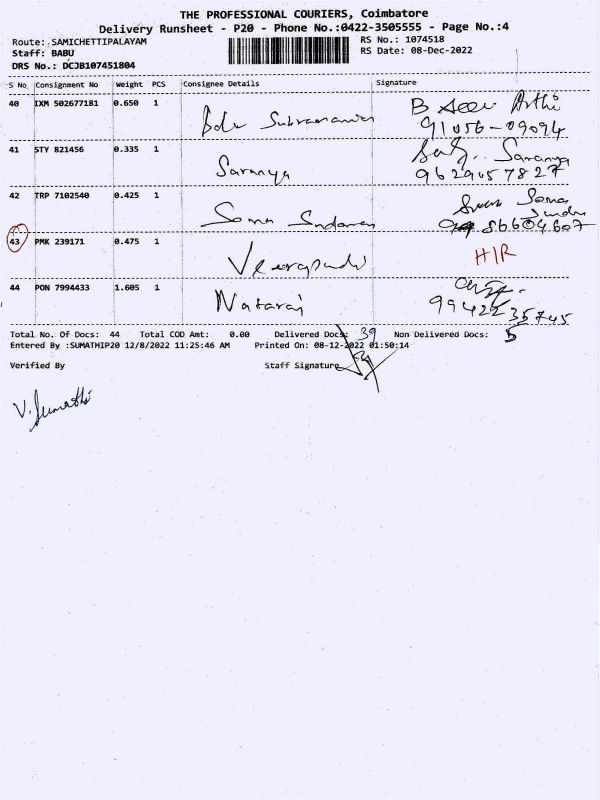 THE PROFESSIONAL COURIERS, Coimbatore
Delivery Runsheet - P20 - Phone No.:0422-3505555 - Page No.:4
Route: SAMICHETTIPALAYAM
RS No.: 1074518
Staff: BABU
RS Date: 08-Dec-2022
DRS No.: DCJB107451804
S No Consignment No Weight PCS Consignee Details Signature
40 IXM 502677181 0.650 1
91056-09094
41 STY 821456 0.335 1 Saranya Saranya
9629057827
42 TRP 7102540 0.425 1 Soma Sundaram Soma
86604607
43 PMK 239171 0.475 1 Veerapandi H/R
44 PON 7994433 1.605 1 Nataraj
9942235745
Total No. Of Docs: 44 Total COD Amt: 0.00 Delivered Docs: 39 Non Delivered Docs: 5
Entered By :SUMATHIP20 12/8/2022 11:25:46 AM Printed On: 08-12-2022 01:50:14
Verified By Staff Signature
V. Sumathi